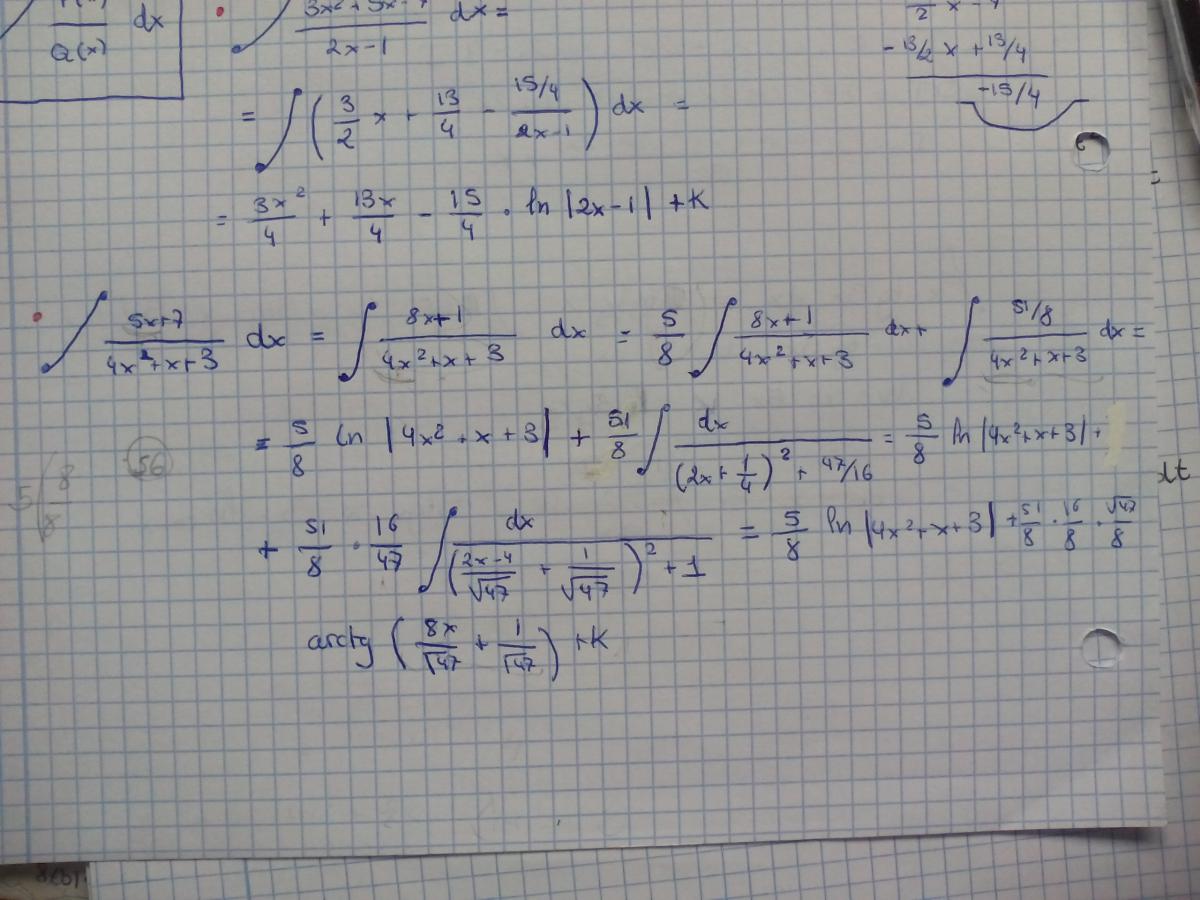 Q(x) dx
2x-1 dx =
2 x
- 13/2 x + 13/4
-15/4
= ∫ ( 3/2 x + 13/4 - 15/4 / 2x-1 ) dx =
= 3x²/4 + 13x/4 - 15/4 · ln |2x-1| + K
∫ 5x+7 / 4x²+x+3 dx = ∫ 8x+1 / 4x²+x+3 dx = 5/8 ∫ 8x+1 / 4x²+x+3 dx + ∫ 51/8 / 4x²+x+3 dx =
= 5/8 ln |4x²+x+3| + 51/8 ∫ dx / (2x + 1/4)² + 47/16 = 5/8 ln |4x²+x+3| +
56
dt
+ 51/8 · 16/47 ∫ dx / ( 2x-4/√47 + 1/√47 )² + 1 = 5/8 ln |4x²+x+3| + 51/8 · 16/8 · √47/8
arctg ( 8x/√47 + 1/√47 ) + K